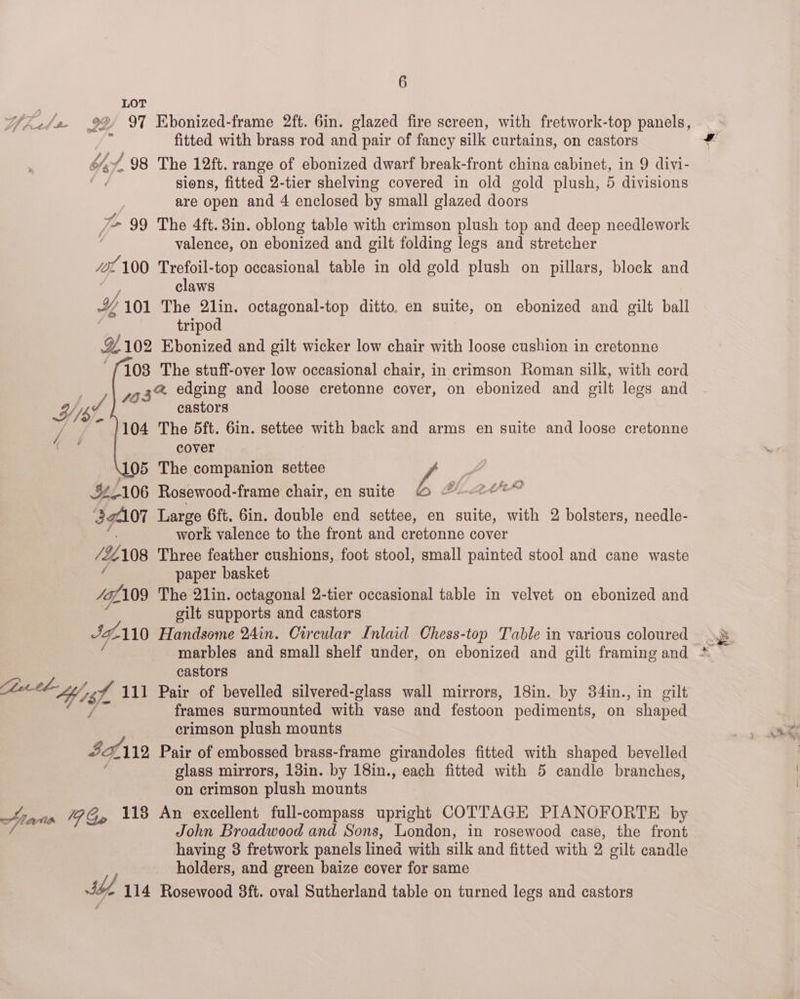 6
LOT
97 Ebonized-frame 2ft. 6in. glazed fire screen, with fretwork-top panels,
fitted with brass rod and pair of fancy silk curtains, on castors
98 The 12ft. range of ebonized dwarf break-front china cabinet, in 9 divi-
sions, fitted 2-tier shelving covered in old gold plush, 5 divisions
are open and 4 enclosed by small glazed doors
99 The 4ft. 3in. oblong table with crimson plush top and deep needlework
valence, on ebonized and gilt folding legs and stretcher
100 Trefoil-top occasional table in old gold plush on pillars, block and
claws
101 The 21in. octagonal-top ditto, en suite, on ebonized and gilt ball
tripod
102 Ebonized and gilt wicker low chair with loose cushion in cretonne
103 The stuff-over low occasional chair, in crimson Roman silk, with cord
edging and loose cretonne cover, on ebonized and gilt legs and
castors
104 The 5ft. 6in. settee with back and arms en suite and loose cretonne
cover
105 The companion settee
106 Rosewood-frame chair, en suite
107 Large 6ft. 6in. double end settee, en suite, with 2 bolsters, needle-
work valence to the front and cretonne cover
108 Three feather cushions, foot stool, small painted stool and cane waste
paper basket
109 The 21in. octagonal 2-tier occasional table in velvet on ebonized and
gilt supports and castors
110 Handsome 24in. Circular Inlaid Chess-top Table in various coloured
marbles and small shelf under, on ebonized and gilt framing and
castors
111 Pair of bevelled silvered-glass wall mirrors, 18in. by 34in., in gilt
frames surmounted with vase and festoon pediments, on shaped
crimson plush mounts
112 Pair of embossed brass-frame girandoles fitted with shaped bevelled
glass mirrors, 13in. by 18in., each fitted with 5 candle branches,
on crimson plush mounts
113 An excellent full-compass upright COTTAGE PIANOFORTE by
John Broadwood and Sons, London, in rosewood case, the front
having 3 fretwork panels lined with silk and fitted with 2 gilt candle
holders, and green baize cover for same
114 Rosewood 3ft. oval Sutherland table on turned legs and castors